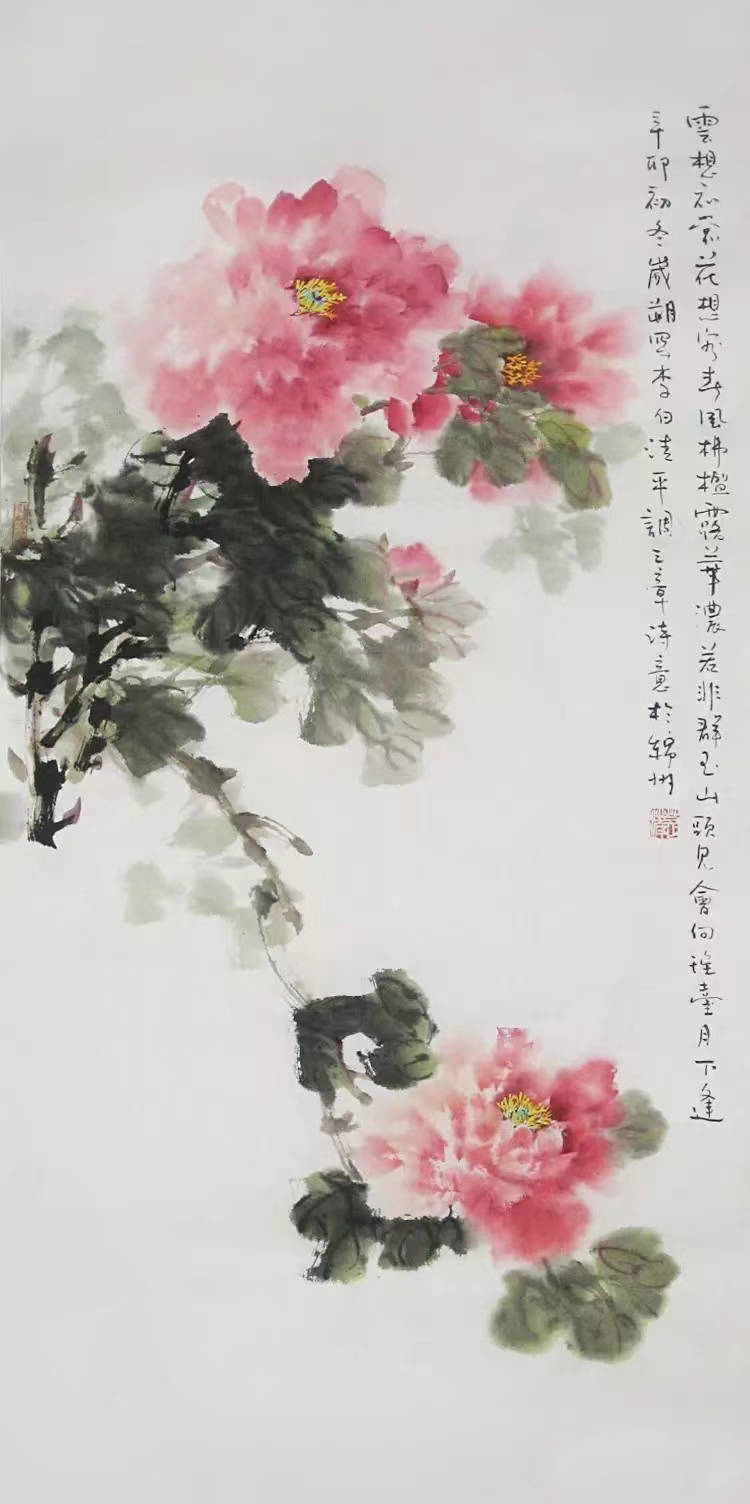 雲想衣裳花想容春風拂檻露華濃若非群玉山頭見會向瑤臺月下逢
辛卯初冬歲朔寫李白清平調三章詩意於錦州